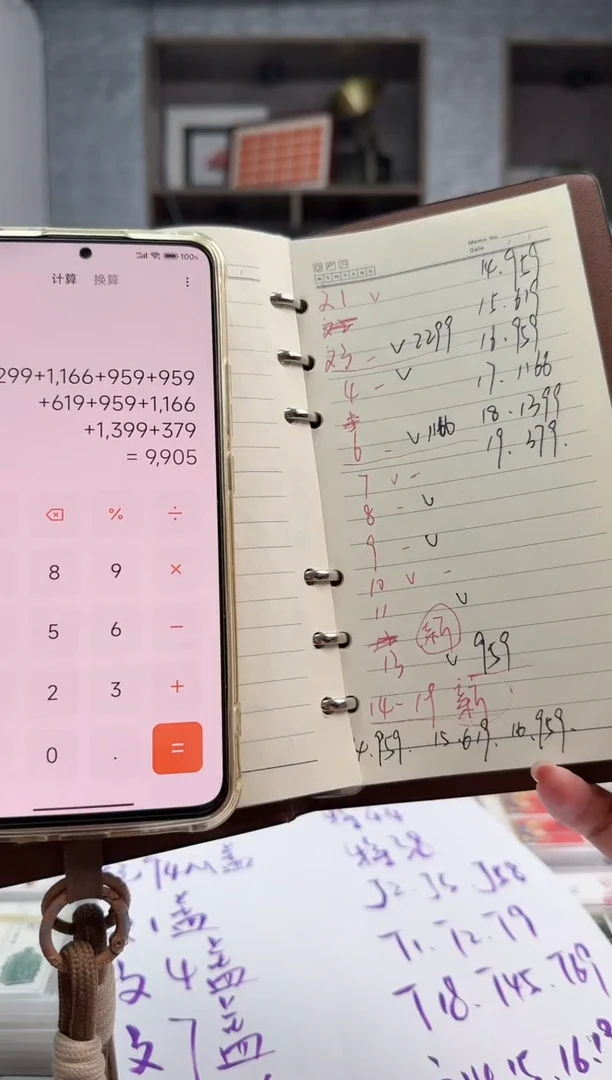 100%
计算 换算
299+1,166+959+959
+619+959+1,166
+1,399+379
= 9,905
%
÷
8
9
×
5
6
−
2
3
+
0
.
=
Memo No.
Date
21 v
23 - v 2299
4 - v
6 - v 1166
7 v -
8 - v
9 - v
10 v -
11 v
新
13 v 959
14-19 新
14.959
15.619
16.959
17.1166
18.1399
19.379.
4.959. 15.619. 16.959.
J2.J5.J58
T1.T2.T9
T18.T45.T69
盖
文4盖
文7盖